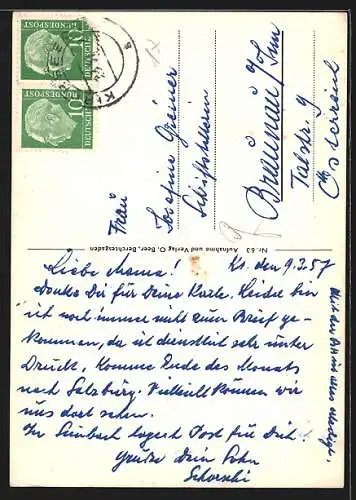 DEUTSCHE
BUNDESPOST
10
DEUTSCHE
BUNDESPOST
10
Frau
Josefine Greiner
Schriftstellerin
Braunau / Inn
Talstr. 9
Österreich
Nr. 63 Aufnahme und Verlag G. Beer, Berchtesgaden
den 9.3.57
Liebe Mama!
Danke Dir für Deine Karte. Leider bin
ich noch immer nicht zum Brief ge-
kommen, da ich dienstlich sehr unter
Druck. Komme Ende des Monats
nach Salzburg. Vielleicht können wir
uns dort sehen.
In Simbach lagert Post für Dich!
Grüße Dein Sohn